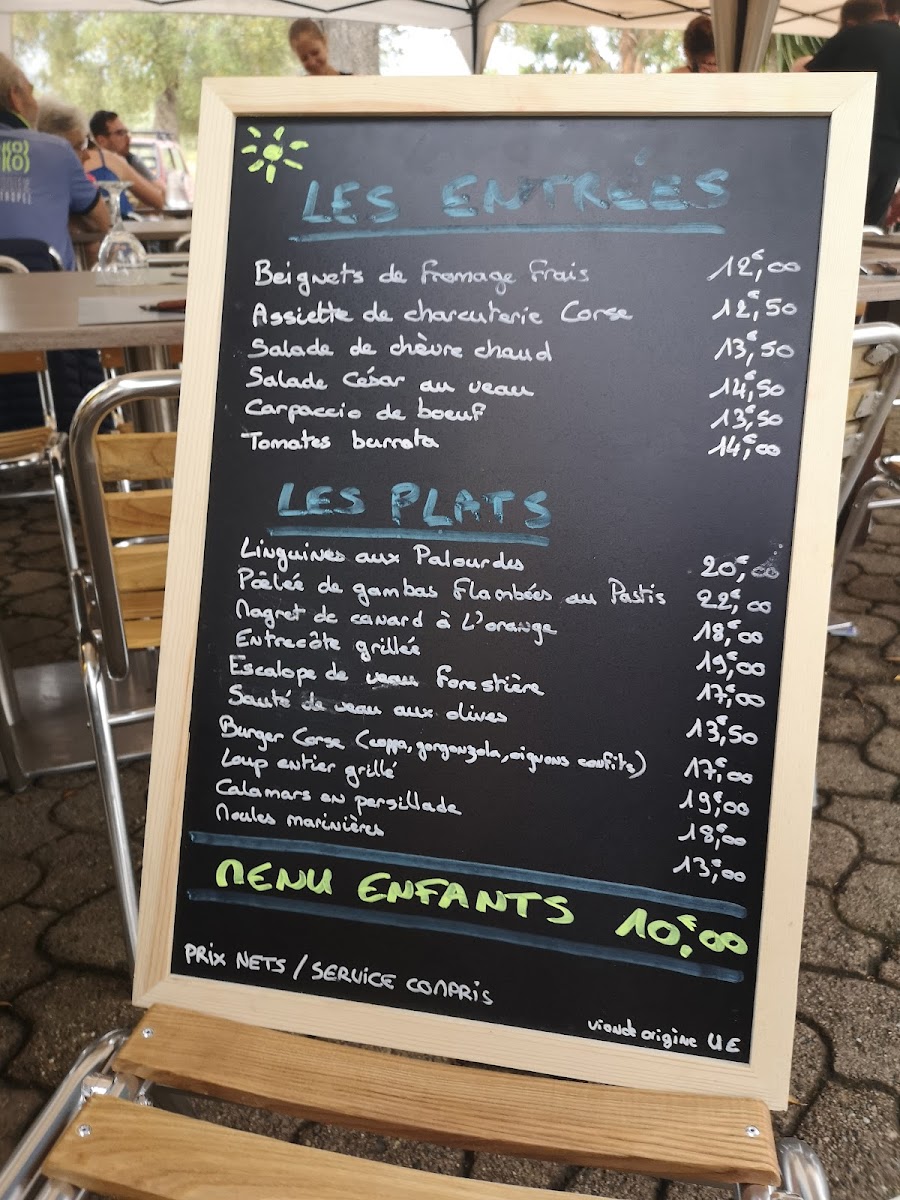 LES ENTRÉES
Beignets de fromage frais 12€,00
Assiette de charcuterie Corse 12€,50
Salade de chèvre chaud 13€,50
Salade César au veau 14€,50
Carpaccio de boeuf 13€,50
Tomates burrata 14€,00
LES PLATS
Linguines aux Palourdes 20€,00
Poêlée de gambas flambées au Pastis 22€,00
Magret de canard à L'orange 18€,00
Entrecôte grillée 19€,00
Escalope de veau forestière 17€,00
Sauté de veau aux olives 13€,50
Burger Corse (coppa, gorgonzola, oignons confits) 17€,00
Loup entier grillé 19€,00
Calamars en persillade 18€,00
Moules marinières 13€,00
MENU ENFANTS 10€,00
PRIX NETS / SERVICE COMPRIS
viande origine UE